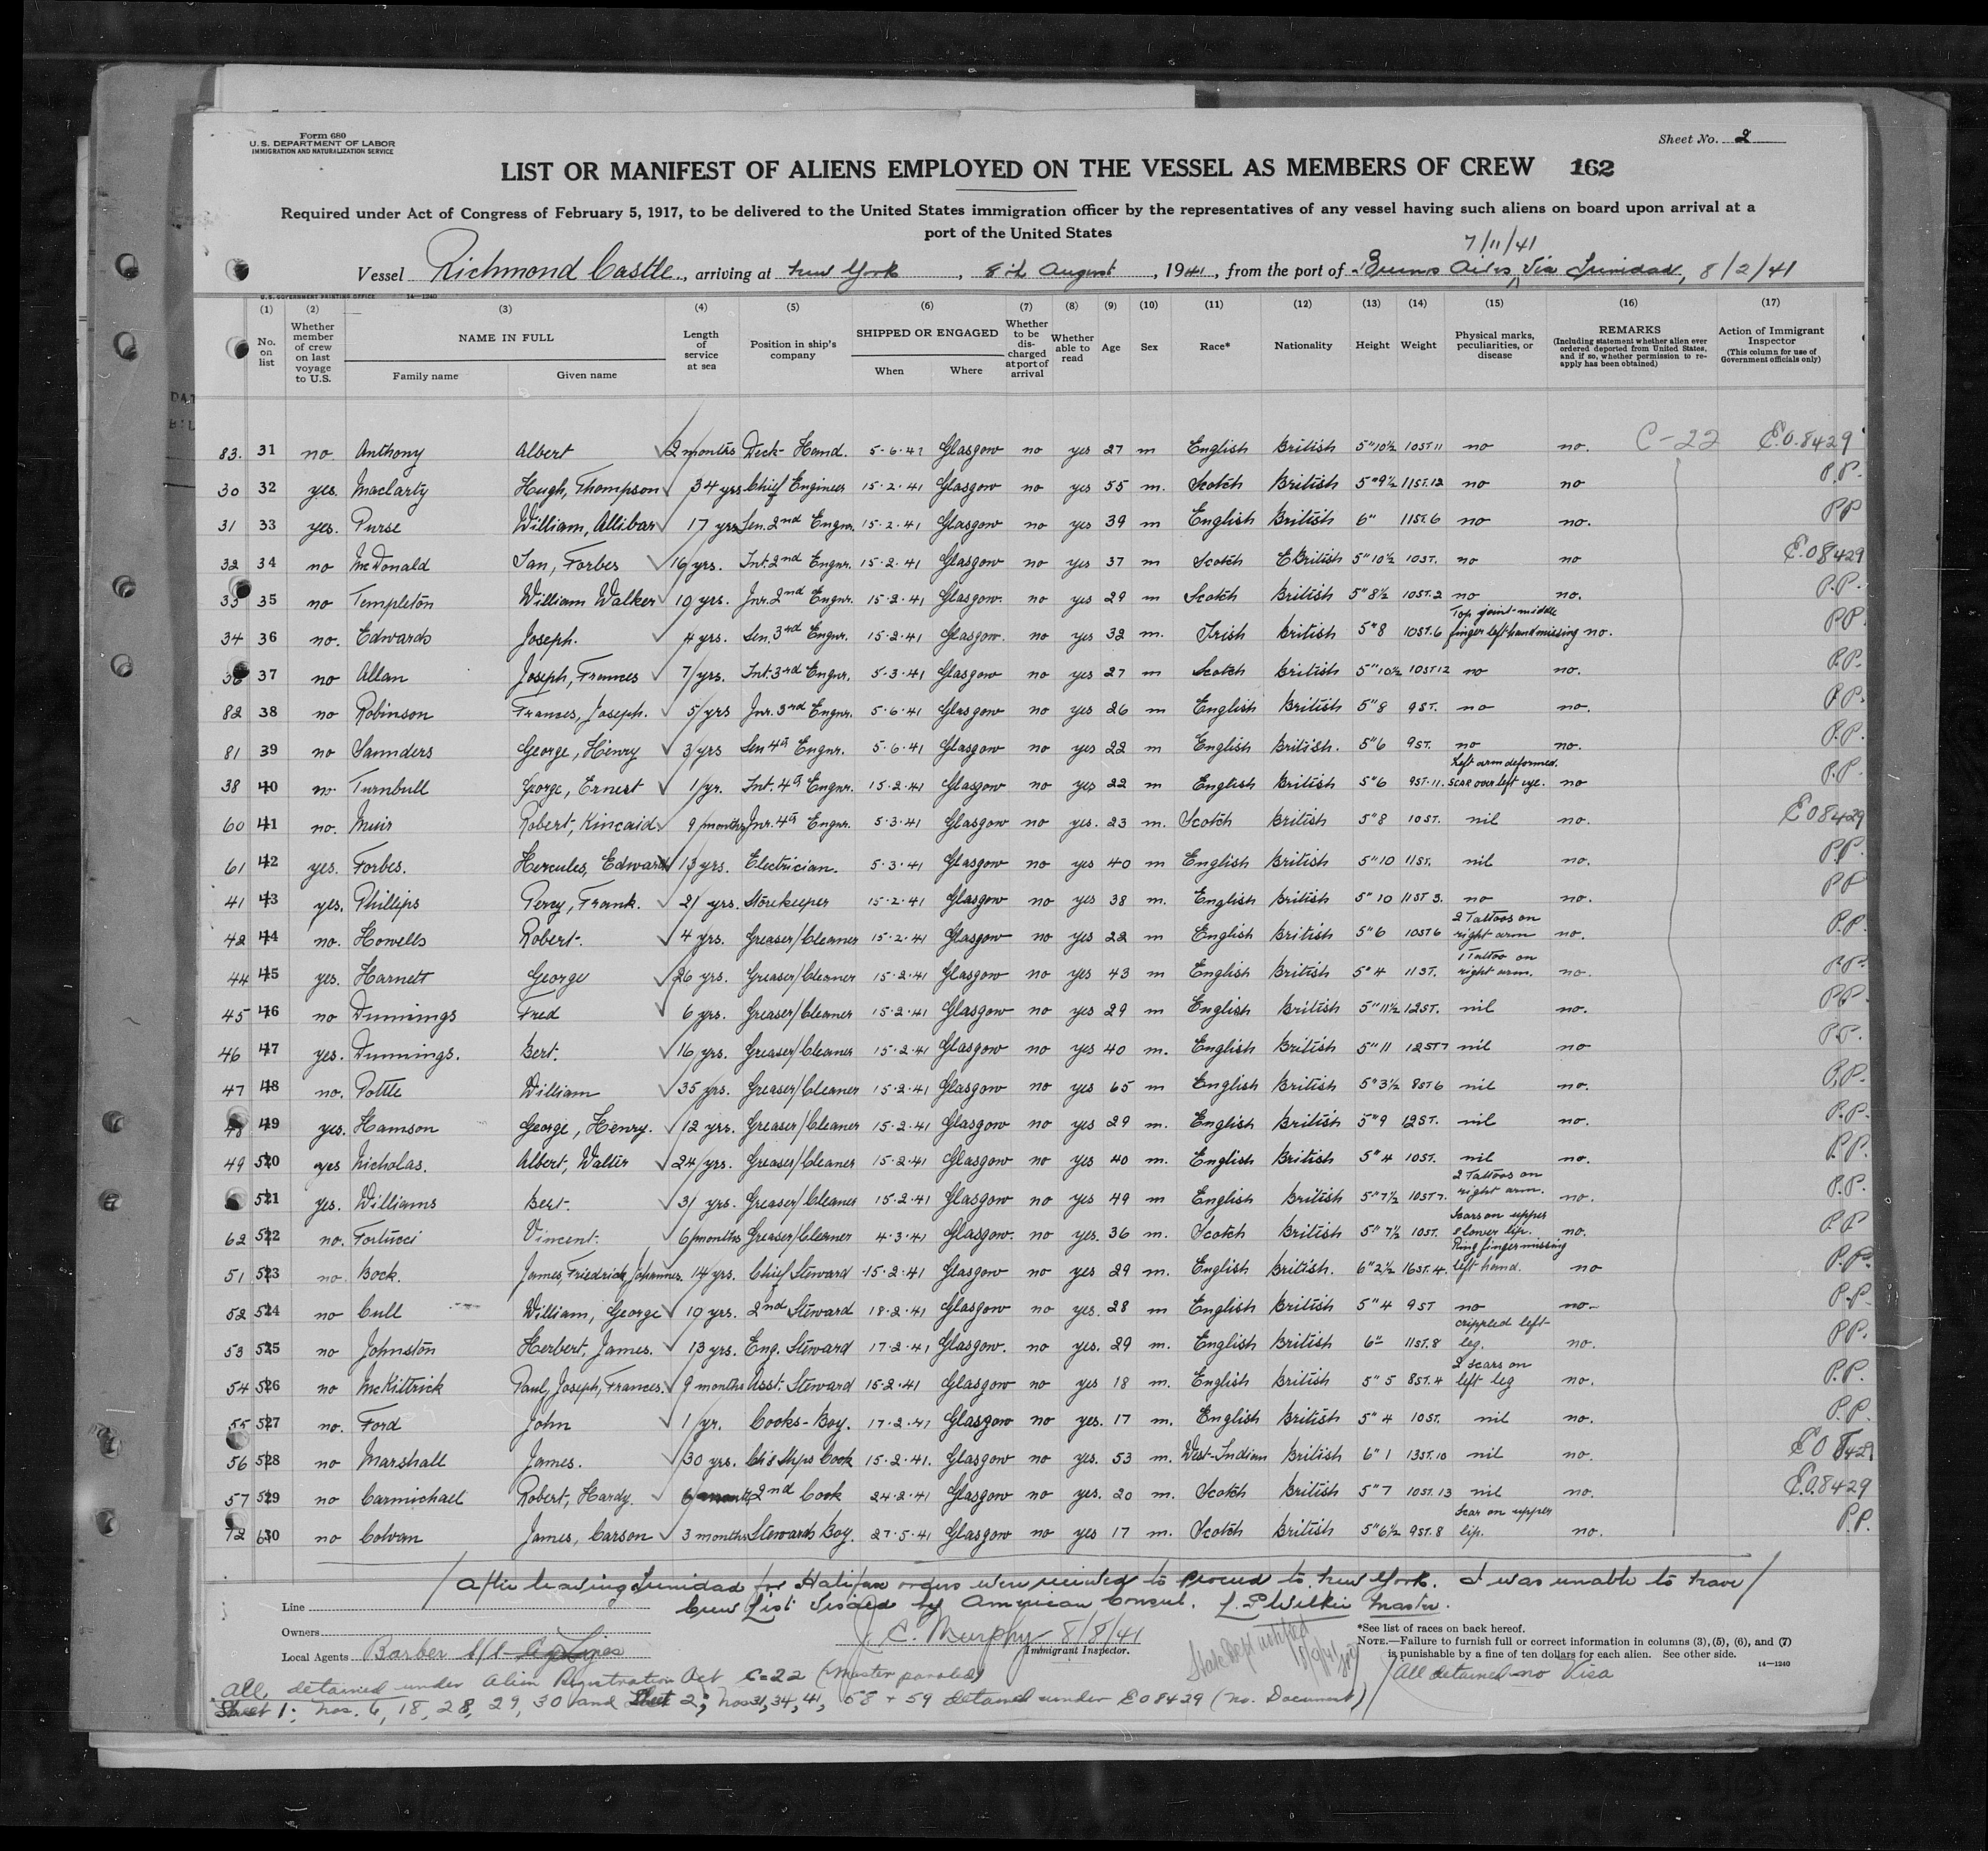 Form 680
U.S. DEPARTMENT OF LABOR
IMMIGRATION AND NATURALIZATION SERVICE
Sheet No. 2
LIST OR MANIFEST OF ALIENS EMPLOYED ON THE VESSEL AS MEMBERS OF CREW 162
Required under Act of Congress of February 5, 1917, to be delivered to the United States immigration officer by the representatives of any vessel having such aliens on board upon arrival at a
port of the United States
7/11/41
Vessel Richmond Castle, arriving at New York, 8th August, 1941, from the port of Buenos Aires, via Trinidad, 8/2/41
U.S. GOVERNMENT PRINTING OFFICE 14-1240
(1) No. on list
(2) Whether member of crew on last voyage to U.S.
(3) NAME IN FULL Family name Given name
(4) Length of service at sea
(5) Position in ship's company
(6) SHIPPED OR ENGAGED When Where
(7) Whether to be discharged at port of arrival
(8) Whether able to read
(9) Age
(10) Sex
(11) Race*
(12) Nationality
(13) Height
(14) Weight
(15) Physical marks, peculiarities, or disease
(16) REMARKS (Including statement whether alien ever ordered deported from United States, and if so, whether permission to reapply has been obtained)
(17) Action of Immigrant Inspector (This column for use of Government officials only)
83. 31 no. Anthony Albert 2 months Deck-Hand. 5-6-41 Glasgow no yes 27 m English British 5"10½ 10ST11 no no. C-22 E.O.8429
30 32 yes. Maclarty Hugh, Thompson 34 yrs. Chief Engineer 15-2-41 Glasgow no yes 55 m. Scotch British 5"9½ 11ST.12 no no P.P.
31 33 yes. Purse William, Allibar 17 yrs Sen. 2nd Engnr. 15-2-41 Glasgow no yes 39 m English British 6" 11ST.6 no no. PP
32 34 no McDonald Ian, Forbes 16 yrs. Int. 2nd Engnr. 15-2-41 Glasgow no yes 37 m Scotch British 5"10½ 10ST. no no E.O8429
33 35 no Templeton William Walker 10 yrs. Jnr. 2nd Engnr. 15-2-41 Glasgow. no yes 29 m Scotch British 5"8½ 10ST.2 no no. P.P.
34 36 no. Edwards Joseph. 4 yrs. Sen. 3rd Engnr. 15-2-41 Glasgow. no yes 32 m. Irish British 5"8 10ST.6 Top joint-middle finger left hand missing no. PP
36 37 no Allan Joseph, Frances 7 yrs. Int. 3rd Engnr. 5-3-41 Glasgow no yes 27 m Scotch British 5"10½ 10ST12 no no. P.P.
82 38 no Robinson Frances, Joseph. 5 yrs Jnr. 3rd Engnr. 5-6-41 Glasgow no yes 26 m English British 5"8 9ST. no no. P.P.
81 39 no Saunders George, Henry 3 yrs Sen 4th Engnr. 5-6-41 Glasgow no yes 22 m English British. 5"6 9ST. no no. P.P.
38 40 no Turnbull George, Ernest 1 yr. Int. 4th Engnr. 15-2-41 Glasgow no yes 22 m English British 5"6 9ST.11. Left arm deformed. scar over left eye. no P.P.
60 41 no. Muir Robert, Kincaid 9 months Jnr. 4th Engnr. 5-3-41 Glasgow no yes. 23 m. Scotch British 5"8 10ST. nil no. E O8429
61 42 yes. Forbes. Hercules, Edward 13 yrs. Electrician. 5-3-41 Glasgow no yes 40 m English British 5"10 11ST. nil no. P.P.
41 43 yes. Phillips Percy, Frank. 21 yrs. Storekeeper 15-2-41 Glasgow no yes 38 m. English British 5"10 11ST 3. no no. PP
42 44 no. Howells Robert. 4 yrs. Greaser/Cleaner 15-2-41 Glasgow no yes 22 m English British 5"6 10ST6 2 Tattoos on right arm no. P.P.
44 45 yes. Harnett George 26 yrs. Greaser/Cleaner 15-2-41 Glasgow no yes 43 m English British 5"4 11ST. 1 Tattoo on right arm. no. P.P.
45 46 no Dunnings Fred 6 yrs. Greaser/Cleaner 15-2-41 Glasgow no yes 29 m English British 5"11½ 12ST. nil no. P.P.
46 47 yes. Dunnings. Bert. 16 yrs. Greaser/Cleaner 15-2-41 Glasgow no yes 40 m. English British 5"11 12ST7 nil no P.P.
47 48 no. Pottle William 35 yrs. Greaser/Cleaner 15-2-41 Glasgow no yes 65 m English British 5"3½ 8ST6 nil no. P.P.
48 49 yes. Hamson George, Henry. 12 yrs. Greaser/Cleaner 15-2-41 Glasgow no yes 29 m. English British 5"9 12ST. nil no. P.P.
49 50 yes Nicholas. Albert, Walter 24 yrs. Greaser/Cleaner 15-2-41 Glasgow no yes 40 m. English British 5"4 10ST. nil no. P.P.
51 yes. Williams Bert. 31 yrs. Greaser/Cleaner 15-2-41 Glasgow no yes 49 m English British 5"7½ 10ST7. 2 Tattoos on right arm. no. P.P.
62 52 no. Fortucci Vincent. 6 months Greaser/Cleaner 4-3-41 Glasgow. no yes. 36 m. Scotch British 5"7½ 10ST. Scars on upper & lower lip. no. P.P
51 53 no. Bock. James, Friedrich, Johannes 14 yrs. Chief Steward 15-2-41 Glasgow no yes 29 m. English British. 6"2½ 16ST.4. Ring finger missing left hand. no P.P.
52 54 no Cull William, George 10 yrs. 2nd Steward 18-2-41 Glasgow no yes. 28 m English British 5"4 9ST no no. P.P.
53 55 no Johnston Herbert, James. 13 yrs. Eng. Steward 17-2-41 Glasgow. no yes. 29 m. English British 6" 11ST.8 crippled left leg. no. P.P.
54 56 no McKittrick Paul, Joseph, Frances. 9 months Asst. Steward 15-2-41 Glasgow no yes 18 m. English British 5"5 8ST.4 2 scars on left leg no. P.P.
55 57 no. Ford John 1 yr. Cooks-Boy. 17-2-41 Glasgow no yes. 17 m. English British 5"4 10ST. nil no. P.P.
56 58 no Marshall James. 30 yrs. Ch'f Ships Cook 15-2-41. Glasgow no yes. 53 m. West-Indian British 6"1 13ST.10 nil no. E O 8429
57 59 no Carmichael Robert, Hardy. 6 months 2nd Cook 24-2-41 Glasgow no yes. 20 m. Scotch British 5"7 10ST.13 nil no. E.O.8429
72 60 no Colvan James, Carson 3 months Stewards Boy. 27-5-41 Glasgow no yes 17 m. Scotch British 5"6½ 9ST.8 Scar on upper lip. no. P.P.
After leaving Trinidad for Halifax orders were received to proceed to New York. I was unable to have
Crew List visaed by American Consul. L. P Wilkie Master.
Line
Owners
Local Agents Barber S/S
J. C. Murphy 8/8/41
Immigrant Inspector.
State Dept notified
*See list of races on back hereof.
NOTE.—Failure to furnish full or correct information in columns (3), (5), (6), and (7)
is punishable by a fine of ten dollars for each alien. See other side.
14-1240
All detained no Visa
All detained under Alien Registration Act C-22 (Master paroled)
Sheet 1: Nos. 6, 18, 28, 29, 30 and Sheet 2; Nos 31, 34, 41, 58 + 59 detained under EO8429 (no Document)